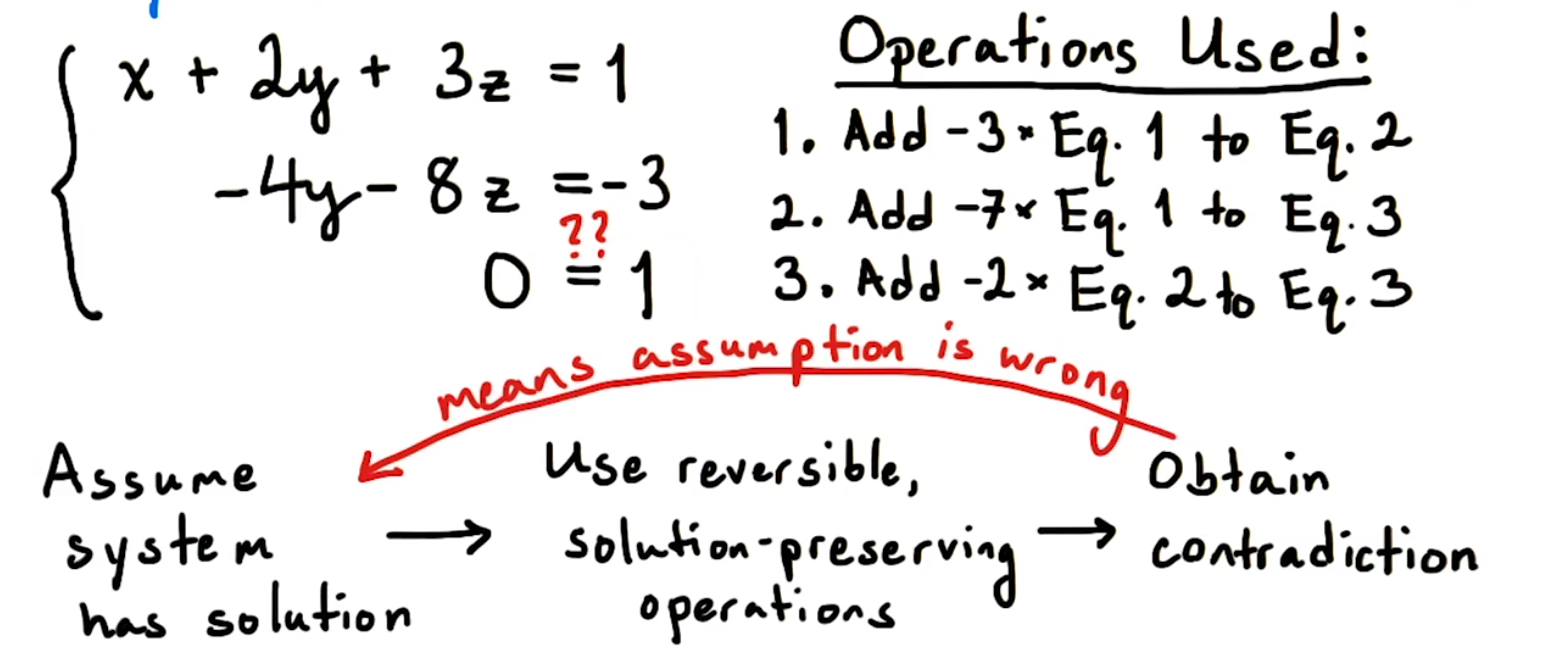 x + 2y + 3z = 1
-4y - 8z = -3
??
0 = 1
Operations Used:
1. Add -3 × Eq. 1 to Eq. 2
2. Add -7 × Eq. 1 to Eq. 3
3. Add -2 × Eq. 2 to Eq. 3
means assumption is wrong
Assume
system
has solution
→
Use reversible,
solution-preserving
operations
→
Obtain
contradiction